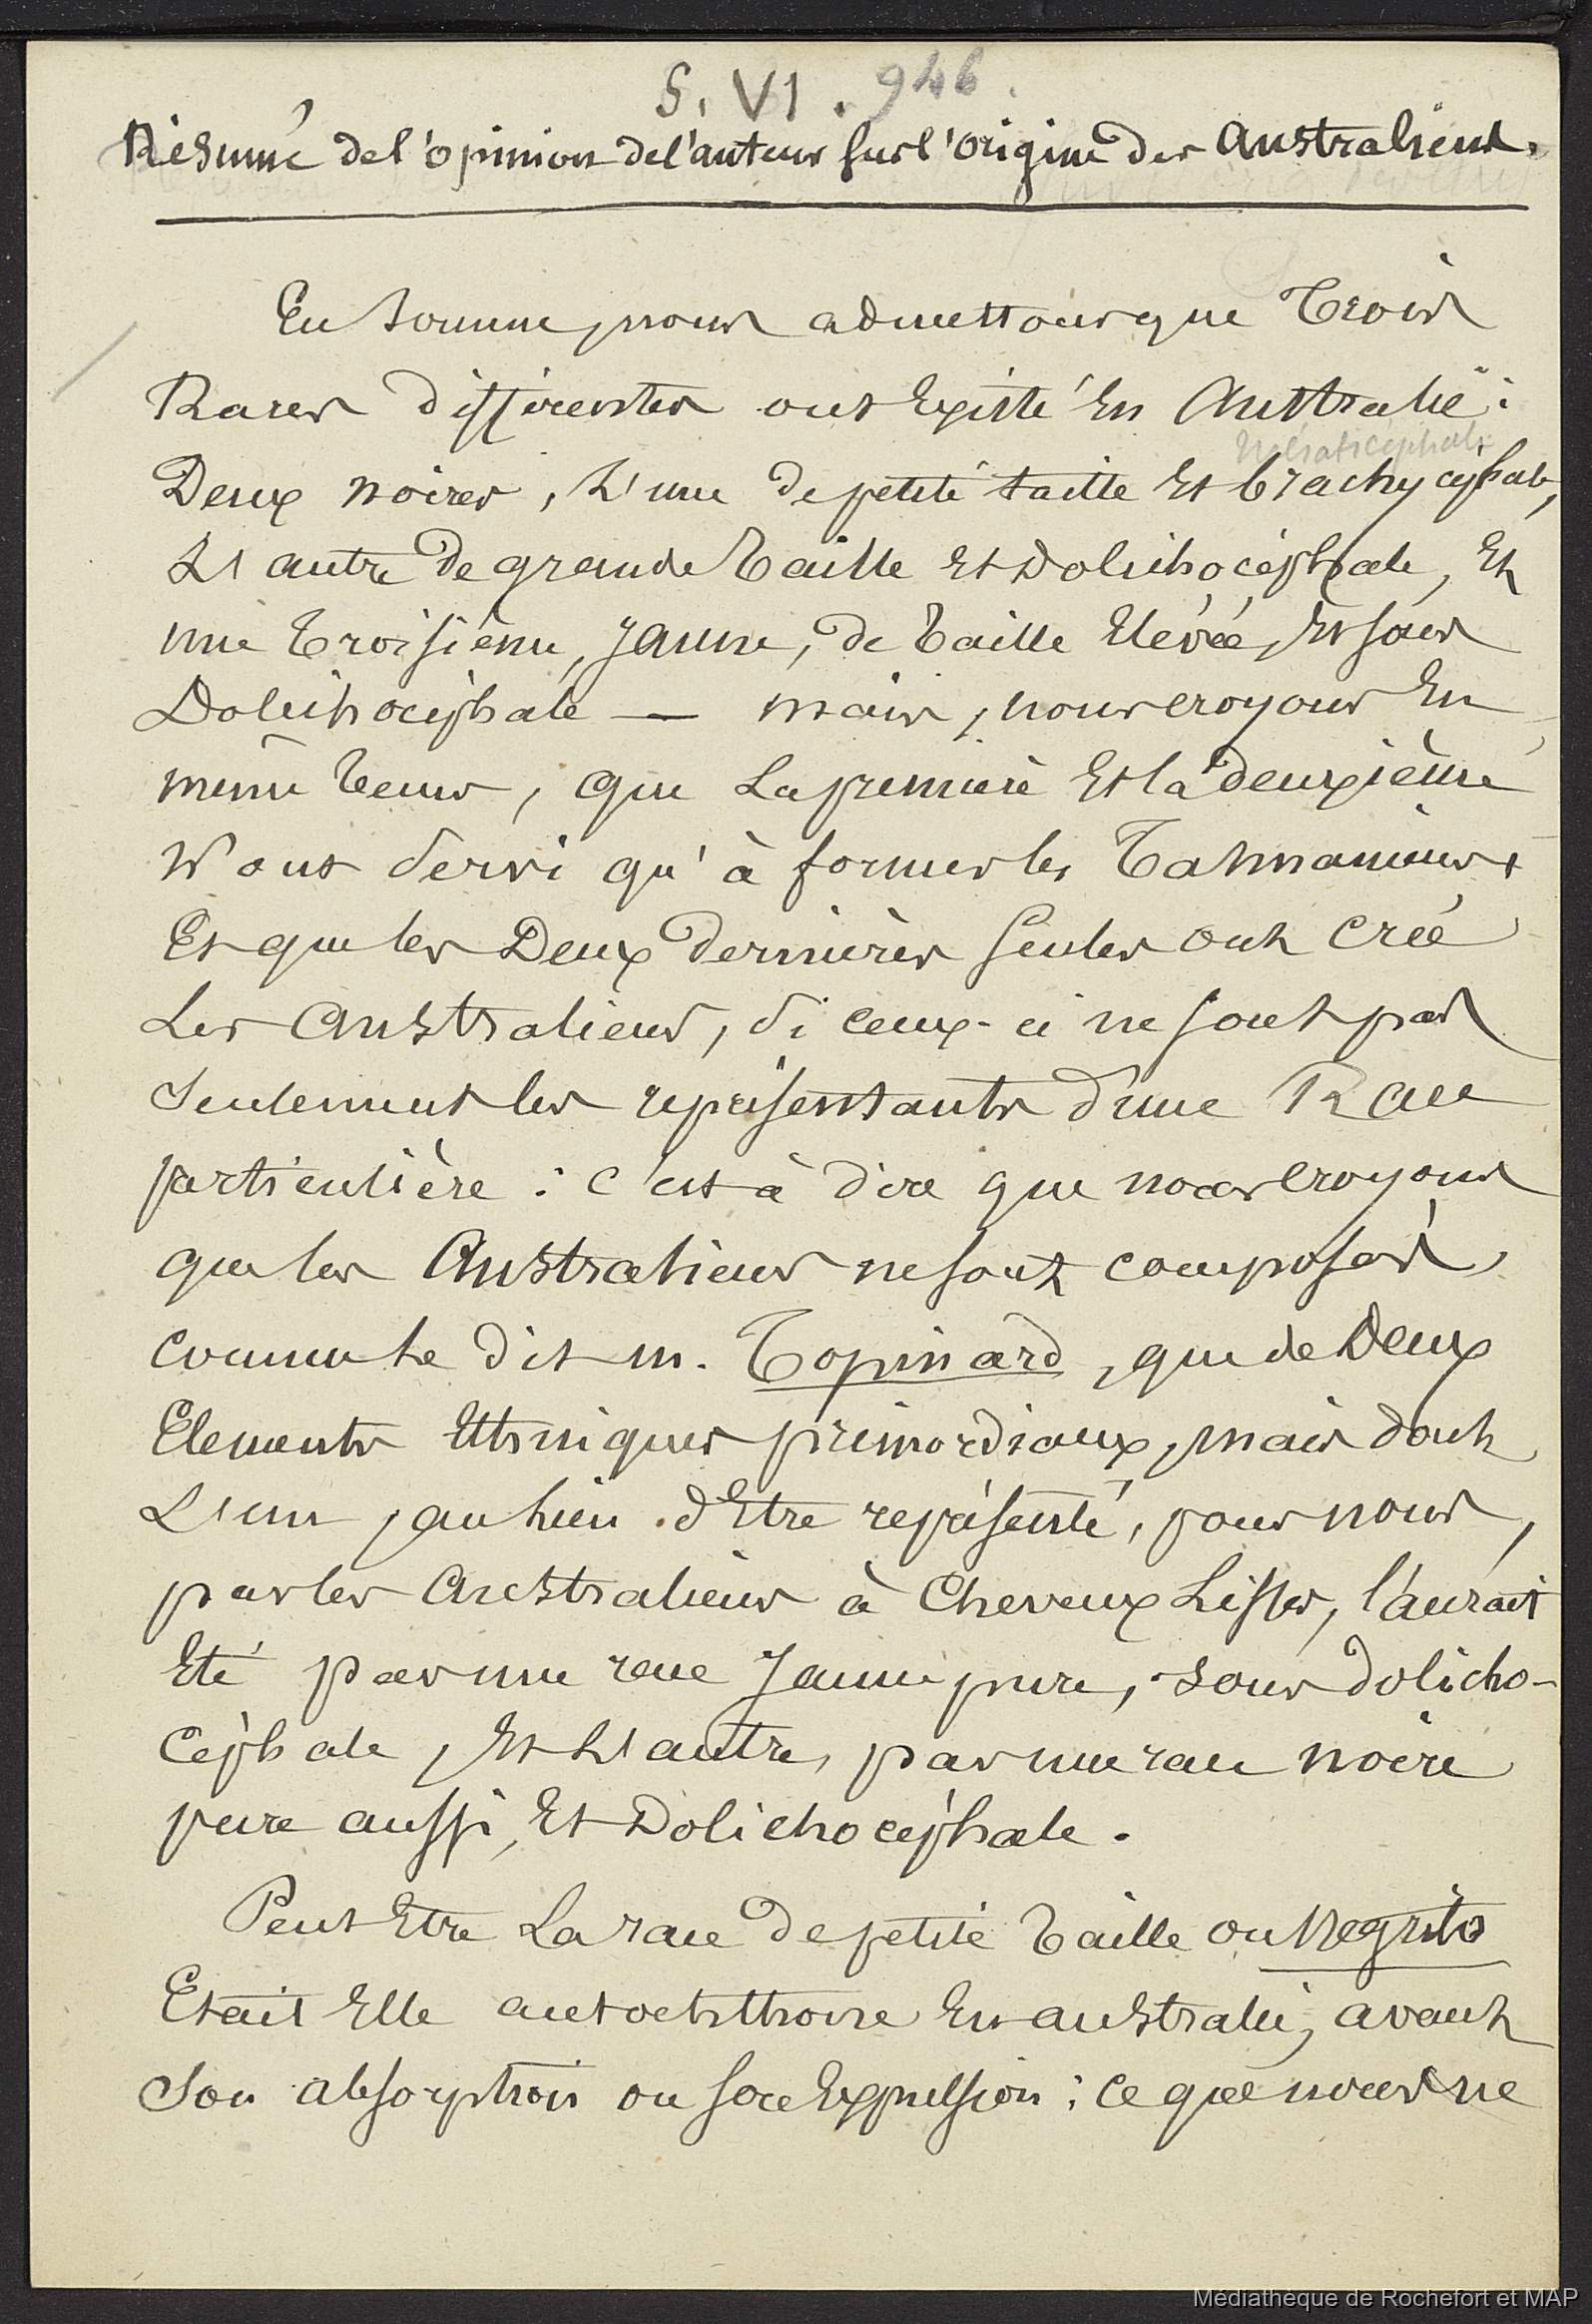 S. VI. 946.
Résumé de l'opinion de l'auteur sur l'origine des Australiens.
En somme, nous admettons que Trois
Races différentes ont Existé En Australie :
Deux noires, L'une de petite taille Et brachycéphale,
L'autre De grande Taille Et Dolichocéphale, Et
une Troisième, Jaune, de Taille Elévée, Et sous
Dolichocéphale — mais, nous croyons En
même Tems, que La première Et la deuxième
N'ont servi qu'à former les Tasmaniens
Et que les Deux dernières seules ont créé
Les Australiens, si ceux-ci ne sont pas
Seulement les représentants d'une Race
particulière : c'est à dire que nous croyons
que les Australiens ne sont composés,
comme le dit m. Topinard, que de Deux
Elements Ethniques primordiaux, mais dont
L'un, au lieu d'Etre représenté, pour nous,
par les Australiens à Cheveux Lisses, l'aurait
Eté par une race Jaune pure, sous dolicho-
céphale, Et L'autre, par une race noire
pure aussi, Et Dolichocéphale.
Peut Etre La race De petite Taille ou Negrito
Etait Elle autochthone En australie, avant
Son absorption ou son Expulsion : ce que nous ne
Médiathèque de Rochefort et MAP